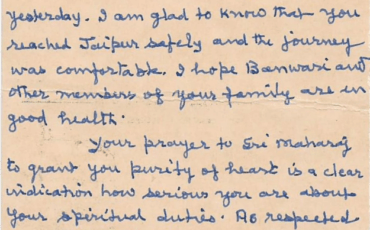 yesterday. I am glad to know that you
reached Jaipur safely and the journey
was comfortable. I hope Banwari and
other members of your family are in
good health.
Your prayer to Sri Maharaj
to grant you purity of heart is a clear
indication how serious you are about
your spiritual duties. As respected